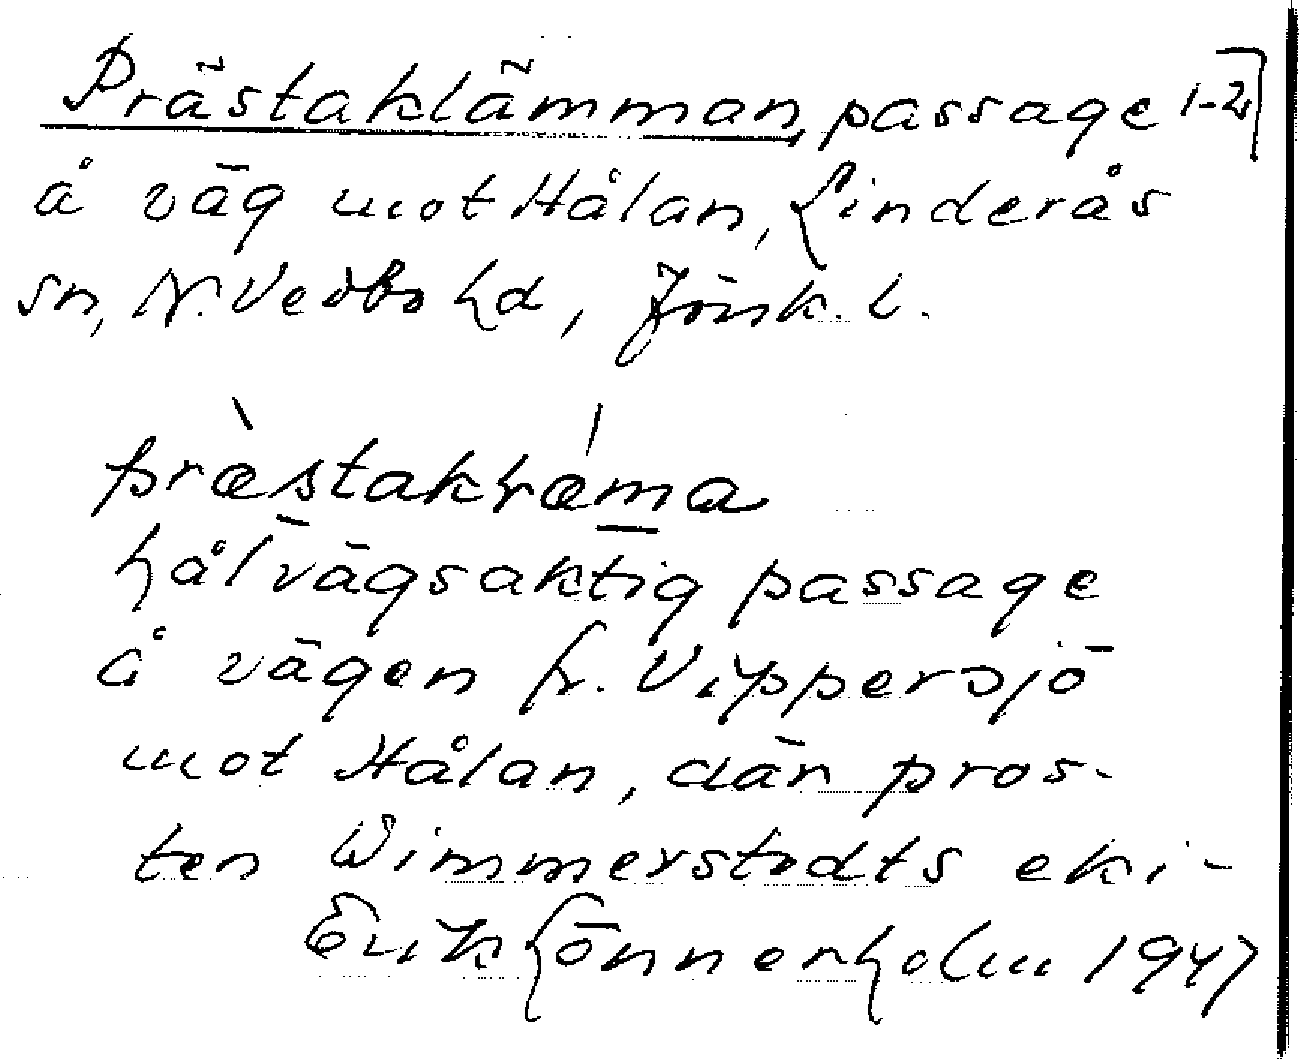 Prästaklämman, passage 1-2
å väg mot Hålan, Linderås
sn, N. Vedbo hd, Jönk. l.
præstakræma
hålvägsaktig passage
å vägen fr. Vippersjö
mot Hålan, där pros-
ten Wimmerstedts eki-
Erik Lönnerholm 1947